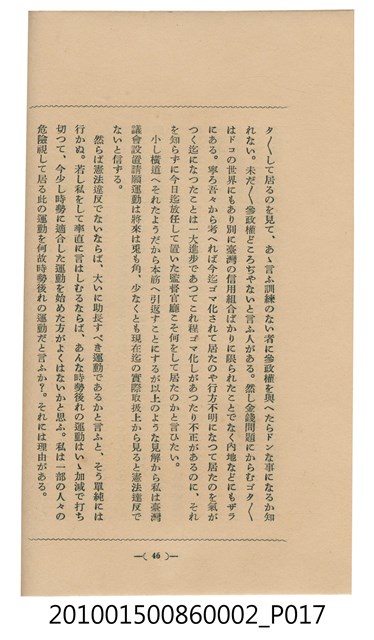 タ〳〵して居るのを見て、あゝ言ふ訓練のない者に參政權を與へたらドンな事になるか知
れない。未だ〳〵參政權どころぢやないと言ふ人がある。然し金錢問題にからむゴタ〳〵
はドコの世界にもあり別に臺灣の信用組合ばかりに限られたことでなく內地などにもザラ
にある。寧ろ吾々から考へれば今迄ゴマ化されて居たのや行方不明になつて居たのを氣が
つく迄になつたことは一大進步であつてこれ程ゴマ化しがあつたり不正があるのに、それ
を知らずに今日迄放任して置いた監督官廳こそ何をして居たのかと言ひたい。
小し橫道へそれたようだから本筋へ引返すことにするが以上のような見解から私は臺灣
議會設置請願運動は將來は兎も角、少なくとも現在迄の實際取扱上から見ると憲法違反で
ないと信ずる。
然らば憲法違反でないならば、大いに助長すべき運動であるかと言ふと、そう單純には
行かぬ。若し私をして率直に言はしむるならば、あんな時勢後れの運動はいゝ加減で打ち
切つて、今少し時勢に適合した運動を始めた方がよくはないかと思ふ。私は一部の人々の
危險視して居る此の運動を何故時勢後れの運動だと言ふか？。それには理由がある。
—( 46 )—
201001500860002_P017